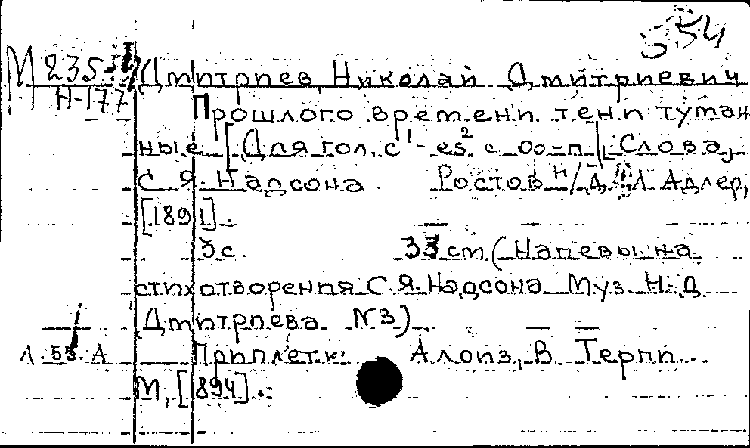 554
М 235
Н-177
Дмитриев, Николай Дмитриевич
Прошлого времени тени туман
ные [Для гол. c¹-es² с фо-п]. Слова
С. Я. Надсона. Ростов н/Д, Л. Адлер,
[1891].
3 с. 33 см. (Напевы на
стихотворения С. Я. Надсона Муз. Н. Д.
Дмитриева. N3)
Л. 53. А Приплет к: Алоиз, В. Терпи.
М, [1894].